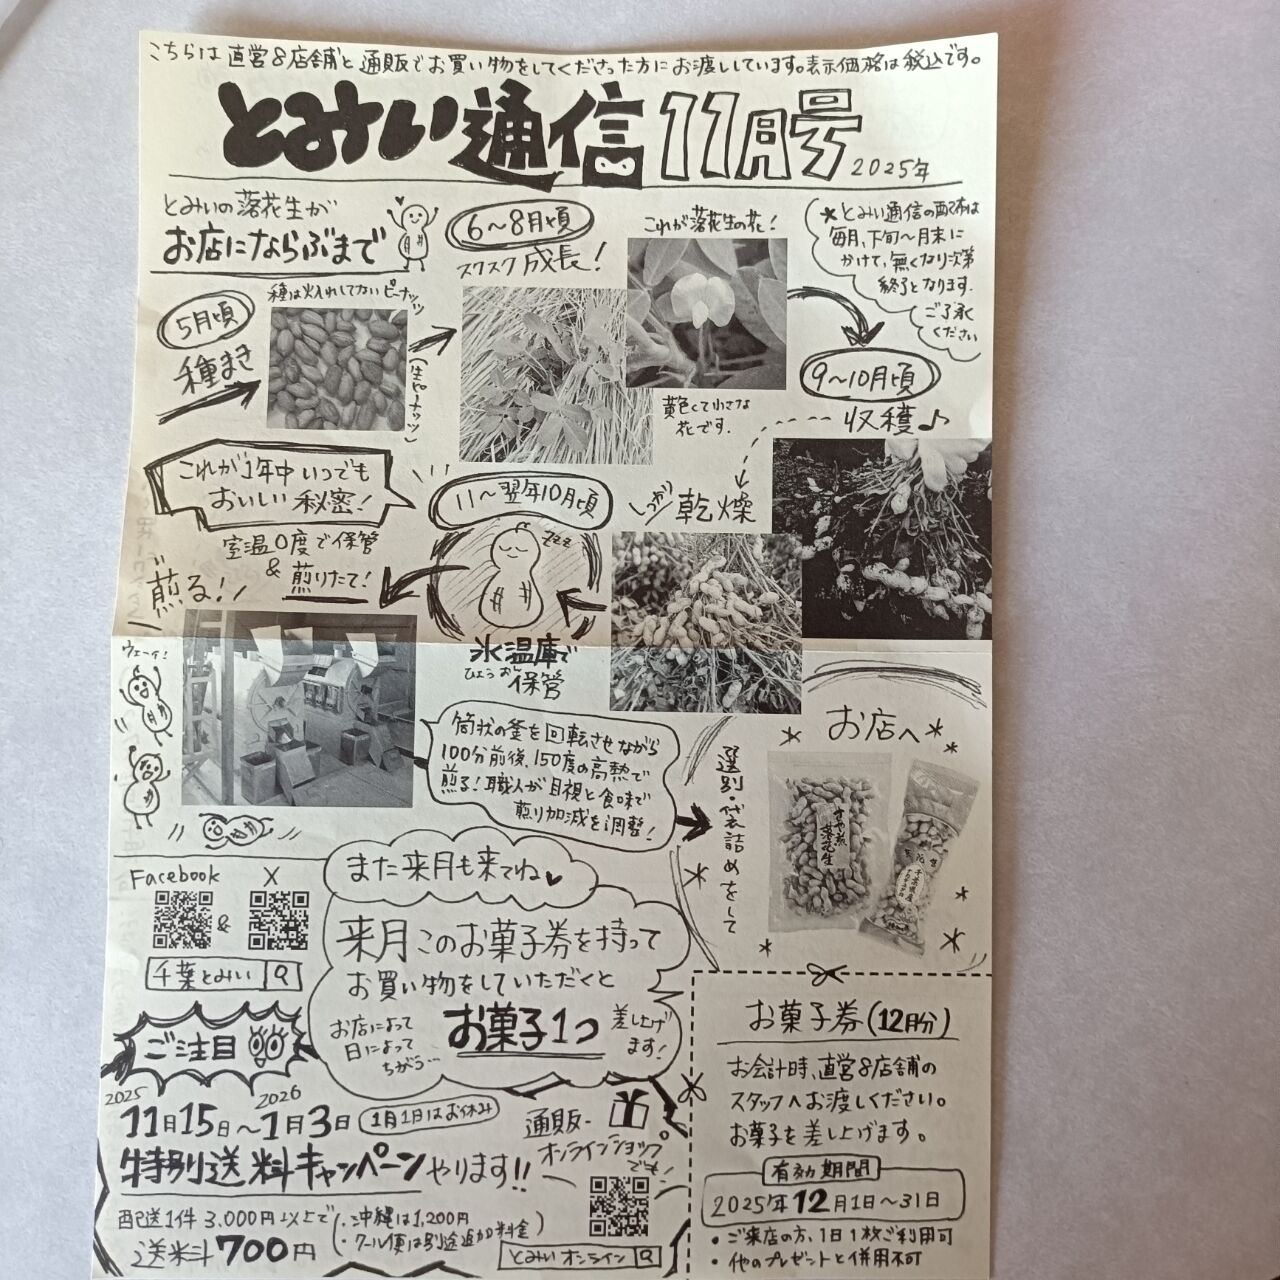 こちらは直営8店舗と通販でお買い物をしてくださった方にお渡ししています。表示価格は税込です。
とみい通信11月号
2025年
とみいの落花生が
お店にならぶまで
5月頃
種まき
種は火入れしてないピーナッツ
(生ピーナッツ)
6〜8月頃
スクスク成長!
これが落花生の花!
黄色くて小さな
花です.
*とみい通信の配布は
毎月、下旬〜月末に
かけて、無くなり次第
終了となります.
ご了承
ください
9〜10月頃
収穫♪
しっかり乾燥
11〜翌年10月頃
zzz
氷温庫で
ひょうおん
保管
これが1年中いつでも
おいしい秘密!
室温0度で保管
&煎りたて!
煎る!
ウェーイ!
筒状の釜を回転させながら
100分前後、150度の高熱で
煎る!職人が目視と食味で
煎り加減を調整!
選別・袋詰めをして
お店へ
落花生
Facebook
&
X
千葉とみい
また来月も来てね♥
来月このお菓子券を持って
お買い物をしていただくと
お店によって
日によって
ちがう…
お菓子1つ
差し上げ
ます!
ご注目
2025
11月15日〜
2026
1月3日
1月1日はお休み
特別送料キャンペーンやります!!
配送1件3,000円以上で
送料700円
(・沖縄は1,200円
・クール便は別途追加料金)
通販・
オンラインショップ
でも!
とみいオンライン
お菓子券(12月分)
お会計時、直営8店舗の
スタッフへお渡しください。
お菓子を差し上げます。
有効期間
2025年12月1日〜31日
・ご来店の方、1日1枚ご利用可
・他のプレゼントと併用不可